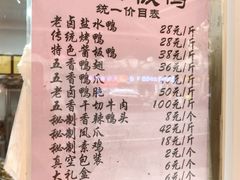 板鸭
统一价目表
老卤盐水鸭 28元/斤
传统烤鸭 28元/斤
特色酱板鸭 38元/斤
五香鸭翅 36元/斤
五香鸭爪 50元/斤
老卤鸭肫 50元/斤
五香牛肉 100元/斤
秘制鸭头 8元/个
秘制凤爪 42元/斤
秘制素鸡 18元/斤
真空包装 2元/个
大礼盒 6元/个